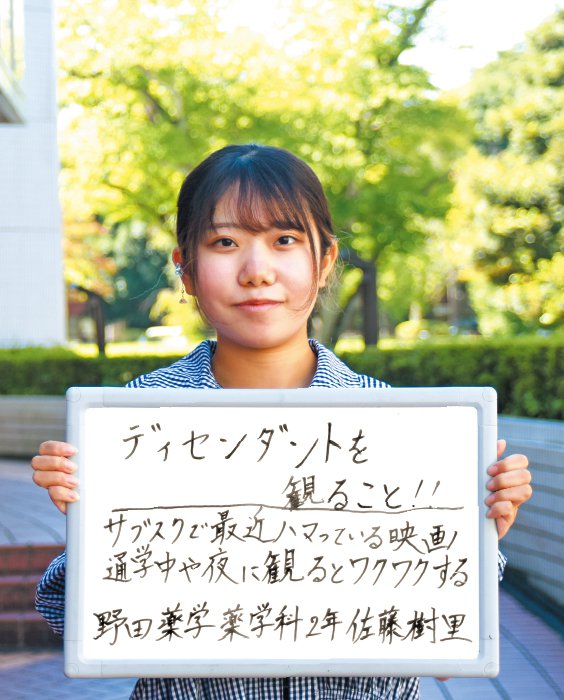 ディセンダントを
観ること!!
サブスクで最近ハマっている映画!
通学中や夜に観るとワクワクする
野田 薬学 薬学科 2年 佐藤樹里